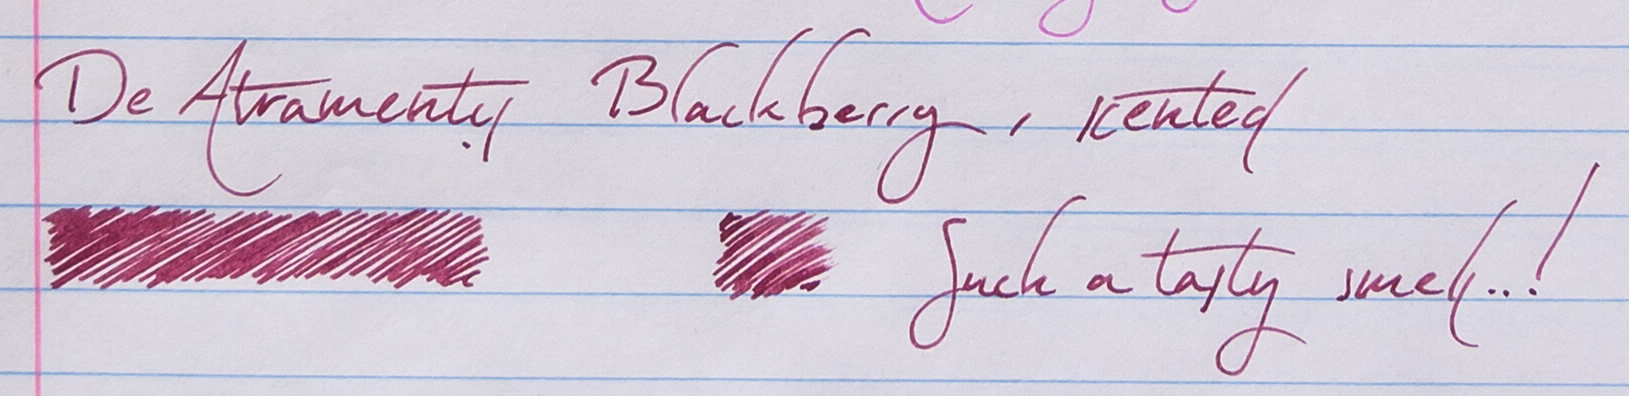 De Atramentis Blackberry, scented
Such a tasty smell..!